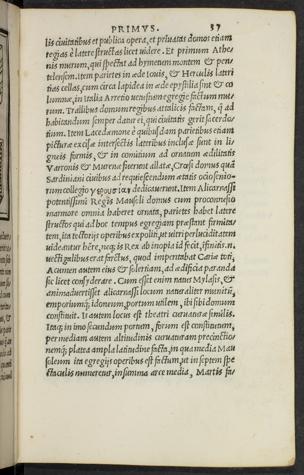 PRIMVS. 37
lis ciuitatibus et publica opera, et priuatas domos etiam
regias è latere structas licet uidere. Et primum Athe
nis murum, qui spectat ad hymettum montem & pen
telensem. item parietes in æde Iouis, & Herculis lateri
tias cellas, cum circa lapideæ in æde epystilia sint & co
lumnæ, in Italia Arretio uetustum egregie factum mu
rum. Trallibus domum regibus attalicis factam, q̃ ad
habitandum semper datur ei, qui ciuitatis gerit sacerdo
tium. Item Lacedæmone è quibusdam parietibus etiam
picturæ excisæ intersectis lateribus inclusæ sunt in li
gneis formis, & in comitium ad ornatum ædilitatis
Varronis & Murenæ fuerunt allatæ, Crœsi domus quã
Sardiniani ciuibus ad requiescendum ætatis ocio senio-
rum collegio γερουσίαν dedicauerunt. Item Alicarnassi
potentissimi Regis Mausoli domus cum proconnesio
marmore omnia haberet ornata, parietes habet latere
structos qui ad hoc tempus egregiam præstant firmita-
tem, ita tectorijs operibus expoliti, ut uitri perluciditatem
uideantur hẽre, neq; is Rex ab inopia id fecit, ifinitis. n.
uectigalibus erat farctus, quod imperabat Cariæ toti,
Acumen autem eius & solertiam, ad ædificia paranda
sic licet consyderare. Cum esset enim natus Mylasis, &
animaduertisset alicarnassi locum naturaliter munitũ,
emporiumq; idoneum, portum utilem, ibi sibi domum
constituit. Is autem locus est theatri curuaturæ similis.
Itaq; in imo secundum portum, forum est constitutum,
per mediam autem altitudinis curuaturam præcinctio-
nemq; platea ampla latitudine facta, in qua media Mau
soleum ita egregijs operibus est factum, ut in septem spe
ctaculis numeretur, in summa arce media, Martis fa-